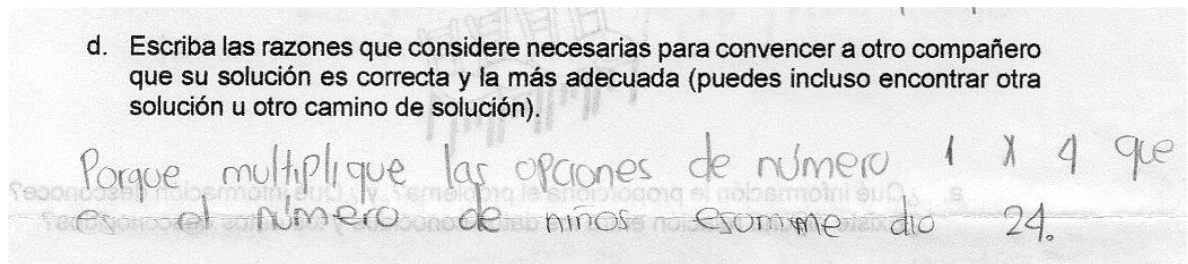 d. Escriba las razones que considere necesarias para convencer a otro compañero
que su solución es correcta y la más adecuada (puedes incluso encontrar otra
solución u otro camino de solución).
Porque multiplique las opciones de número 1 x 4 que
es el número de niños esumme dio 24.